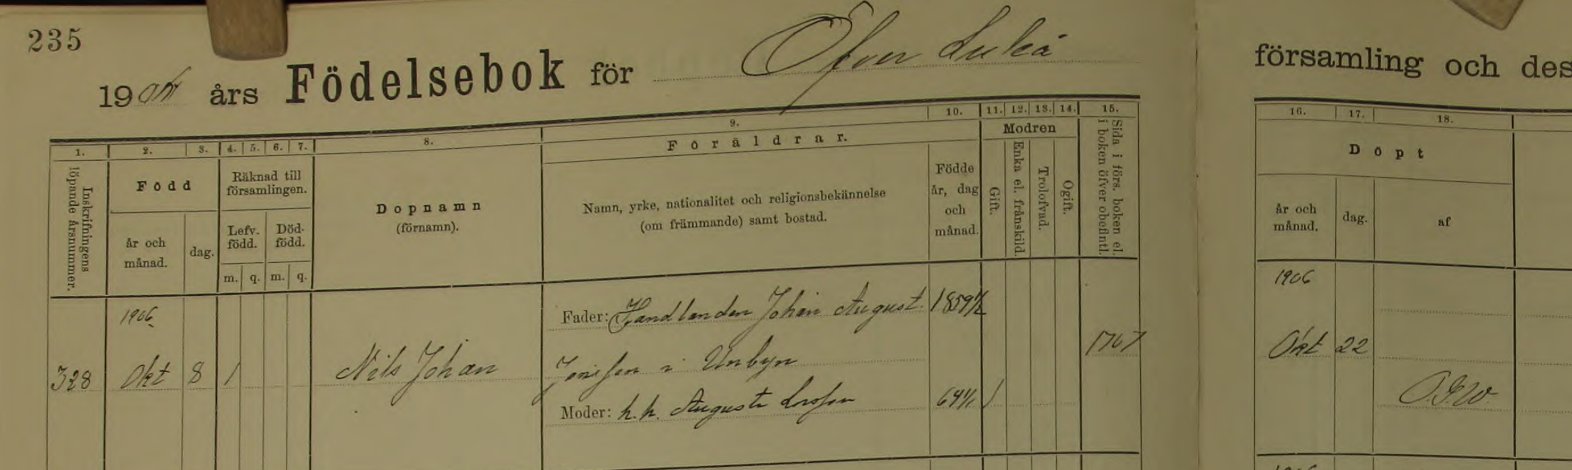 235
1906 års Födelsebok för Öfver Luleå
församling och des
1. 2. 3. 4. 5. 6. 7. 8. 9. 10. 11. 12. 13. 14. 15.
16. 17. 18.
Inskrifningens löpande årsnummer.
Född
år och månad.
dag.
Räknad till församlingen.
Lefv. född.
Död-född.
m. q. m. q.
Dopnamn
(förnamn).
Föräldrar.
Namn, yrke, nationalitet och religionsbekännelse
(om främmande) samt bostad.
Födde år, dag och månad.
Modren
Gift.
Enka el. frånskild.
Trolofvad.
Ogift.
Sida i förs. boken el. i boken öfver obefintl.
Döpt
år och månad.
dag.
af
1906.
328 Okt 8 1 Nils Johan
Fader: Handlanden Johan August 1859
i Unbyn
Moder: h. h. Augusta 64 1
1767
1906
Okt 22